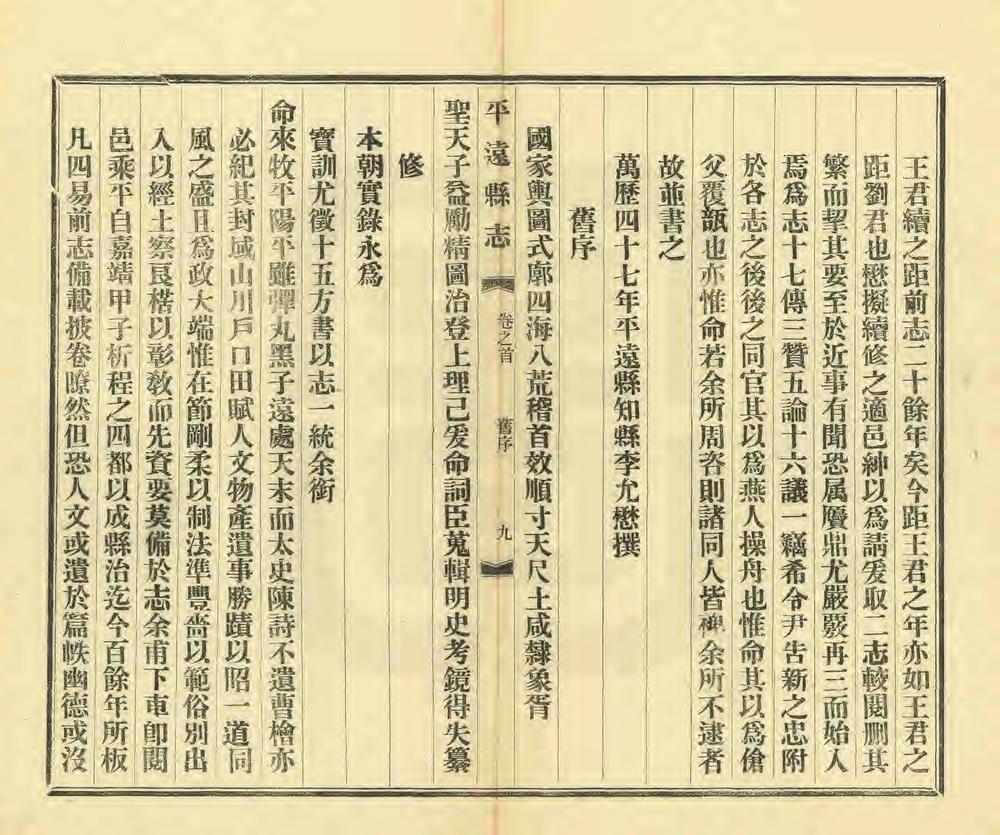 王君續之距前志二十餘年矣今距王君之年亦如王君之
距劉君也懋擬續修之適邑紳以爲請爰取二志較閱刪其
繁而挈其要至於近事有聞恐属贋鼎尤嚴覈再三而始入
焉爲志十七傳三贊五論十六議一竊希令尹告新之忠附
於各志之後後之同官其以爲燕人操舟也惟命其以爲傖
父覆瓿也亦惟命若余所周咨則諸同人皆裨余所不逮者
故並書之
萬歷四十七年平遠縣知縣李允懋撰
舊序
國家輿圖式廓四海八荒稽首效順寸天尺土咸隸象胥
平遠縣志 卷之首 舊序 九
聖天子益勵精圖治登上理已爰命詞臣蒐輯明史考鏡得失纂
修
本朝實錄永爲
寶訓尤徵十五方書以志一統余銜
命來牧平陽平雖彈丸黑子遠處天末而太史陳詩不遺曹檜亦
必紀其封域山川戶口田賦人文物產遺事勝蹟以昭一道同
風之盛且爲政大端惟在節剛柔以制法準豐嗇以範俗別出
入以經土察良楛以彰敎而先資要莫備於志余甫下車卽閱
邑乘平自嘉靖甲子析程之四都以成縣治迄今百餘年所板
凡四易前志備載披卷瞭然但恐人文或遺於篇帙幽德或沒